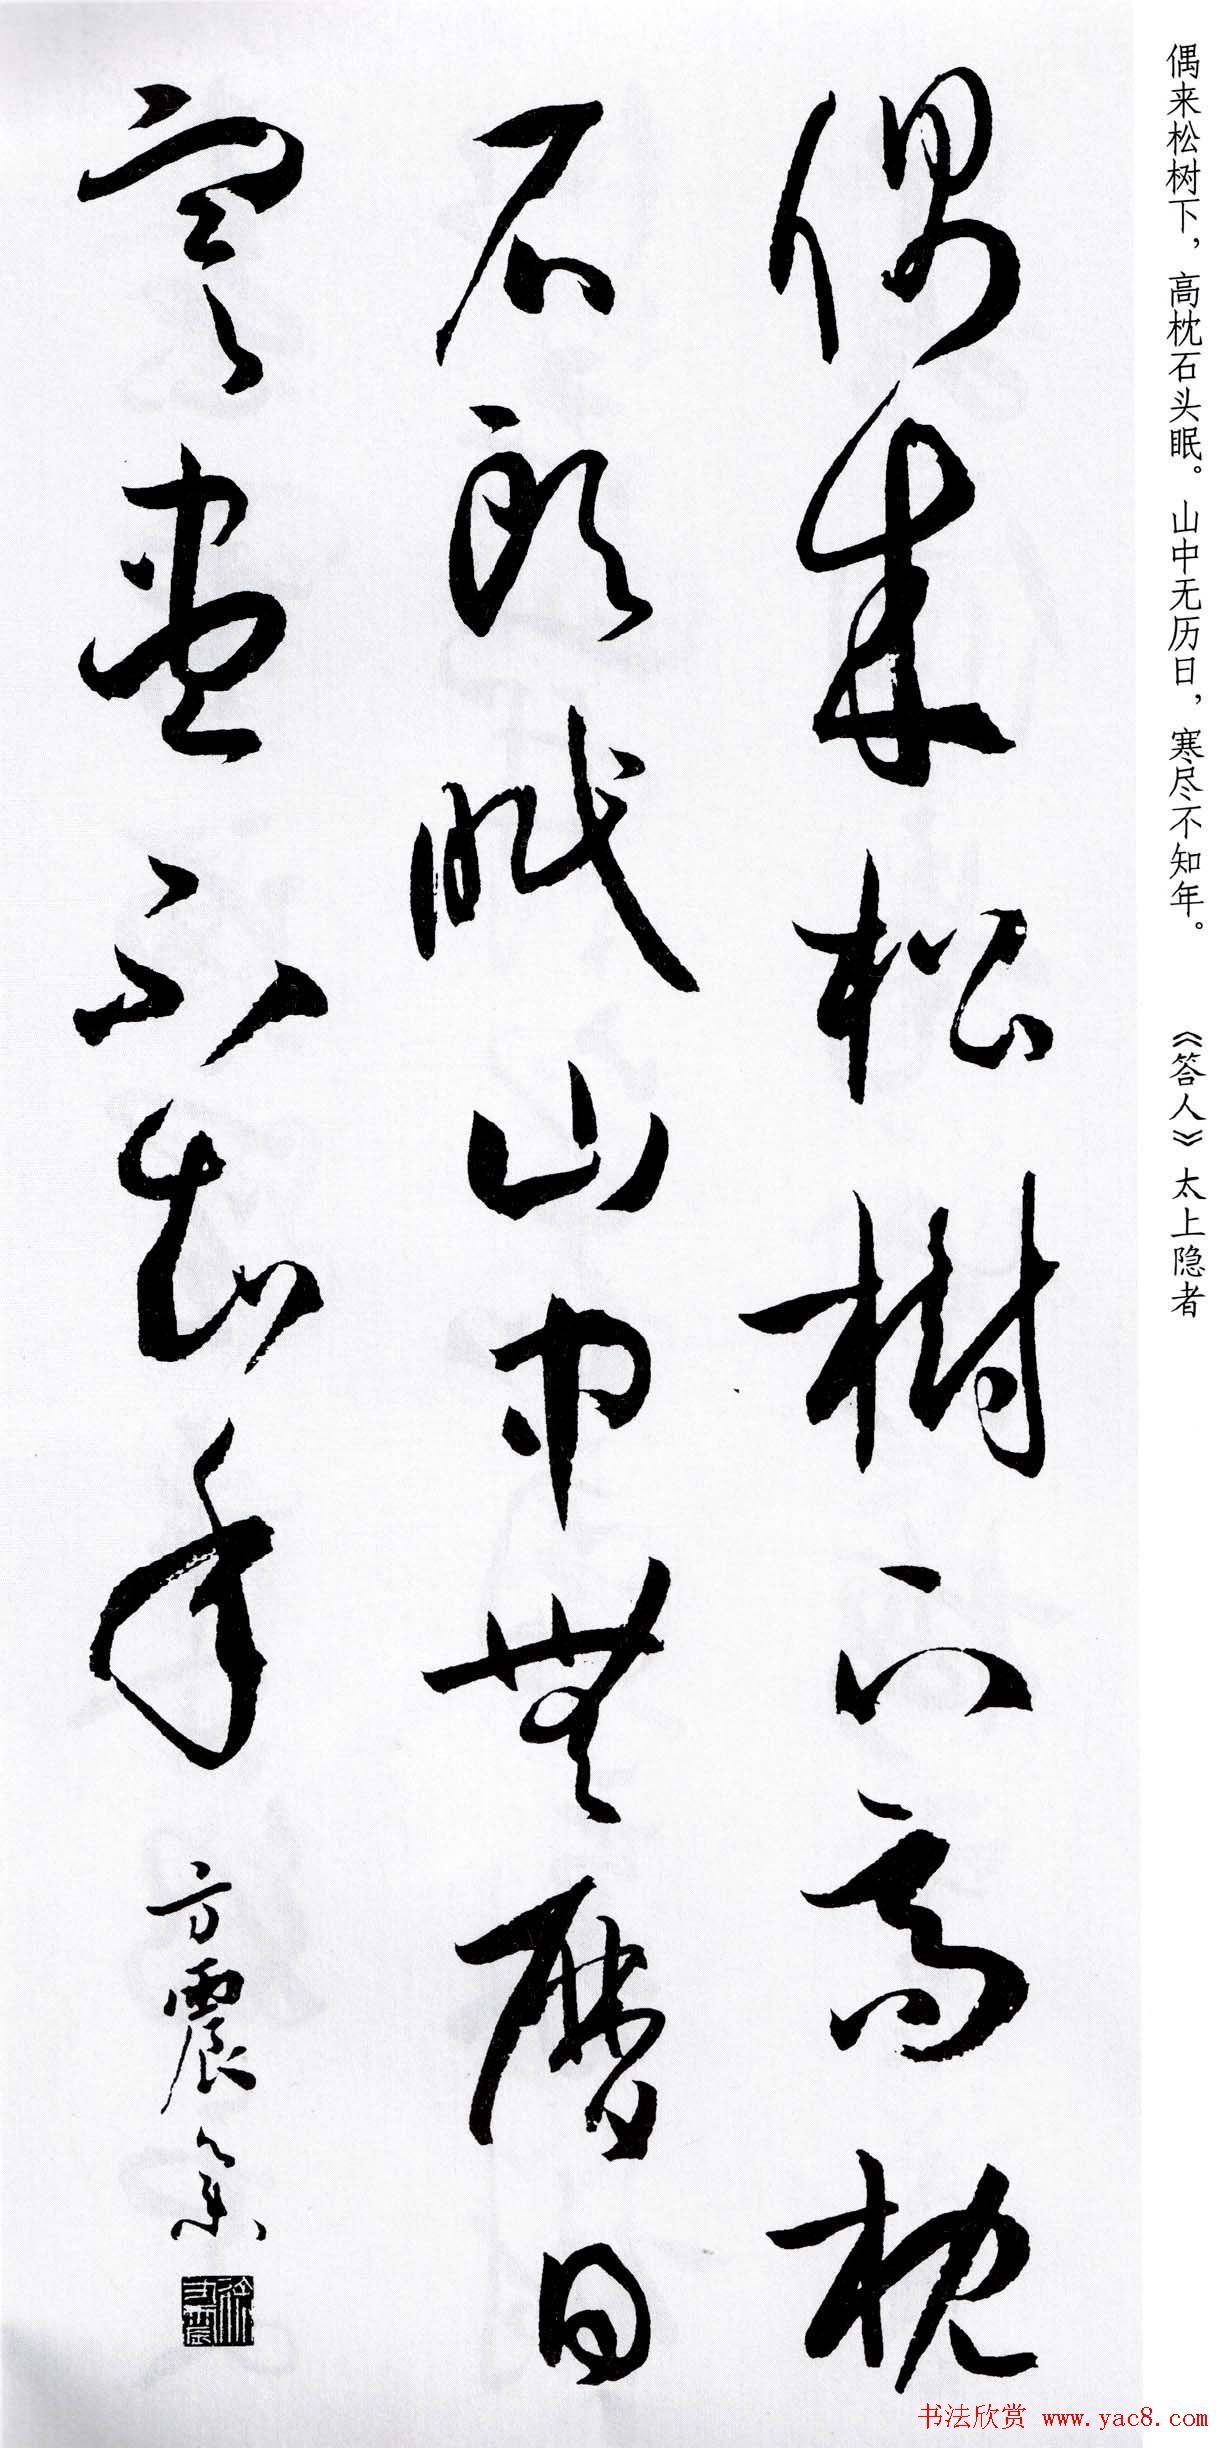 偶来松树下，高枕石头眠。山中无历日，寒尽不知年。 《答人》太上隐者
偶来松樹下高枕
石頭眠山中無曆日
寒盡不知年
方震
书法欣赏 www.yac8.com